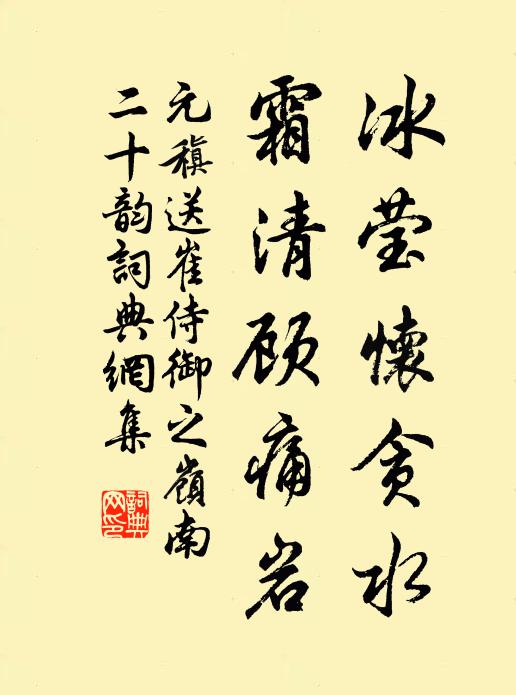 冰莹懷贪水
霜清顾痛岩
元稹送崔侍御之嶺南
二十韵詞典網集
詞典网印